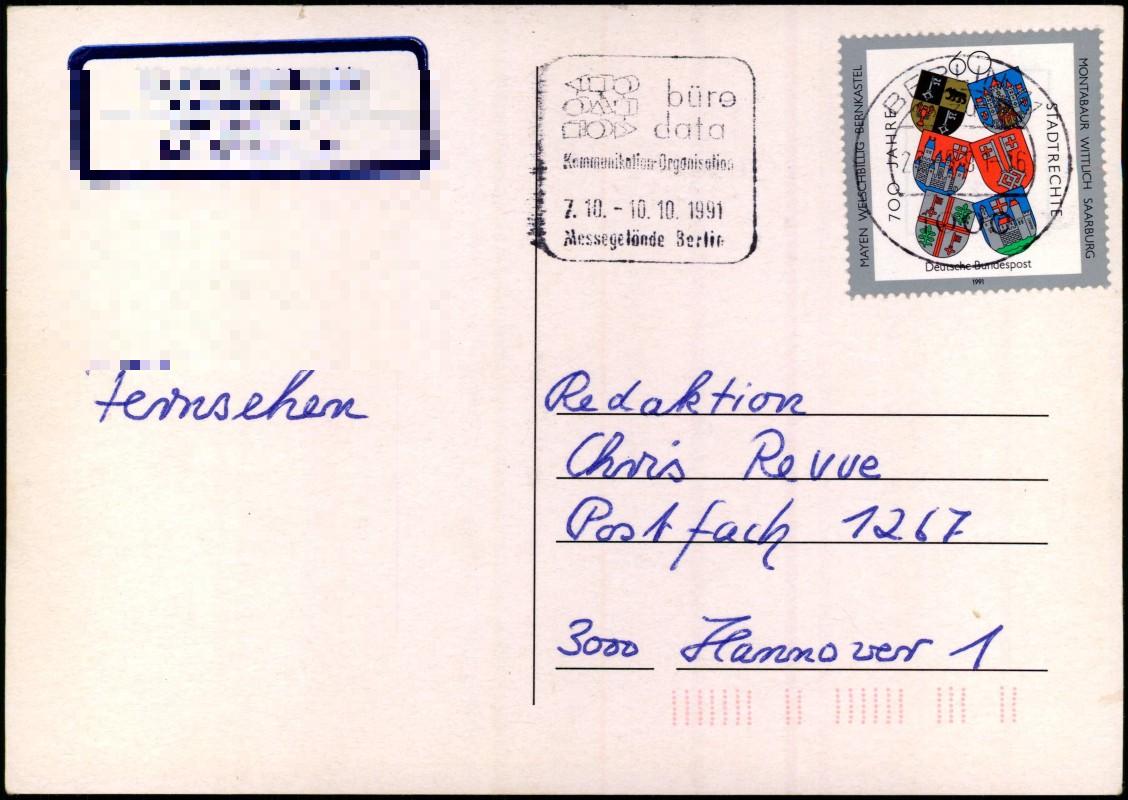 büro
data
Kommunikation-Organisation
7. 10. - 10. 10. 1991
Messegelände Berlin
MAYEN WELSCHBILLIG BERNKASTEL
700 JAHRE
STADTRECHTE
MONTABAUR WITTLICH SAARBURG
60
BERLIN
Deutsche Bundespost
1991
Fernsehen
Redaktion
Chris Revue
Postfach 1267
3000 Hannover 1